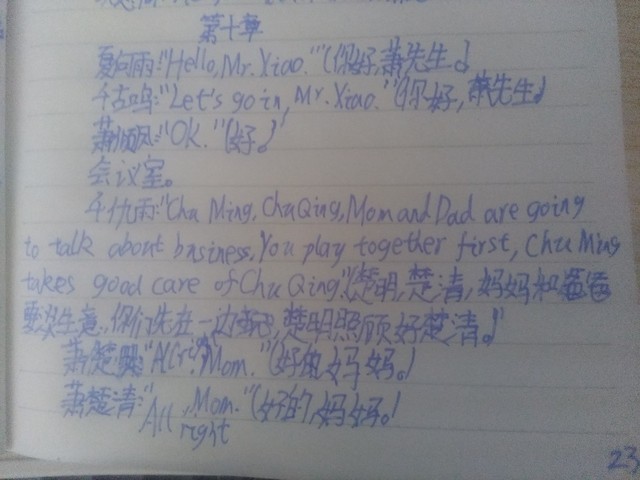 第十章
夏向雨:"Hello, Mr. Xiao."(你好,萧先生。)
千古鸣:"Let's go in, Mr. Xiao."(你好,萧先生。)
萧顺风:"OK."(好。)
会议室。
千仇雨:"Chu Ming, Chu Qing, Mom and Dad are going
to talk about business. You play together first, Chu Ming
takes good care of Chu Qing."(楚明,楚清,妈妈和爸爸
要谈生意,你们先在一边玩,楚明照顾好楚清。)"
萧楚明:"All right, Mom."(好的,妈妈。)
萧楚清:"All right, Mom."(好的,妈妈。)
23